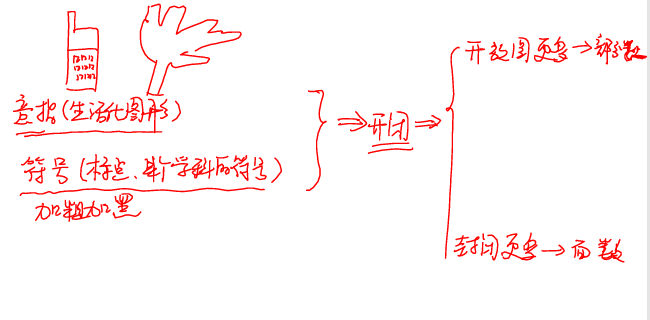 意指(生活化图形)
符号(标点、某个学科的符号)
加粗加黑
⇒开闭⇒
开放图更多→部分数
封闭更多→面数